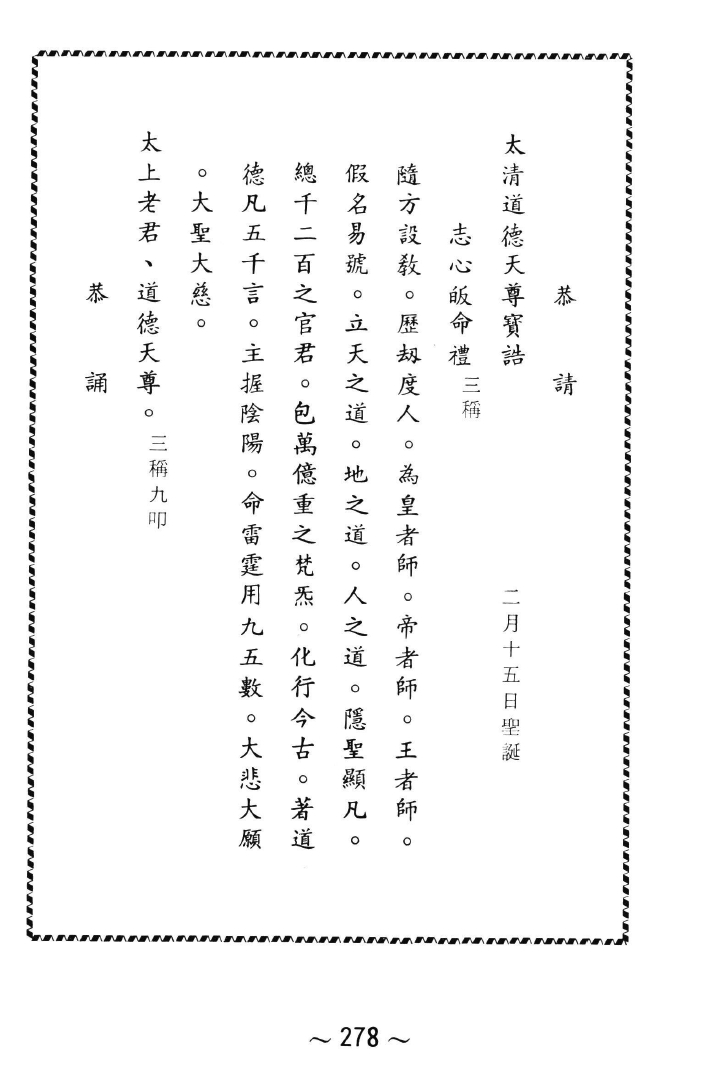 恭請
太清道德天尊寶誥　二月十五日聖誕
志心皈命禮三稱
隨方設教。歷劫度人。為皇者師。帝者師。王者師。
假名易號。立天之道。地之道。人之道。隱聖顯凡。
總千二百之官君。包萬億重之梵炁。化行今古。著道
德凡五千言。主握陰陽。命雷霆用九五數。大悲大願
。大聖大慈。
太上老君、道德天尊。三稱九叩
恭誦
～278～